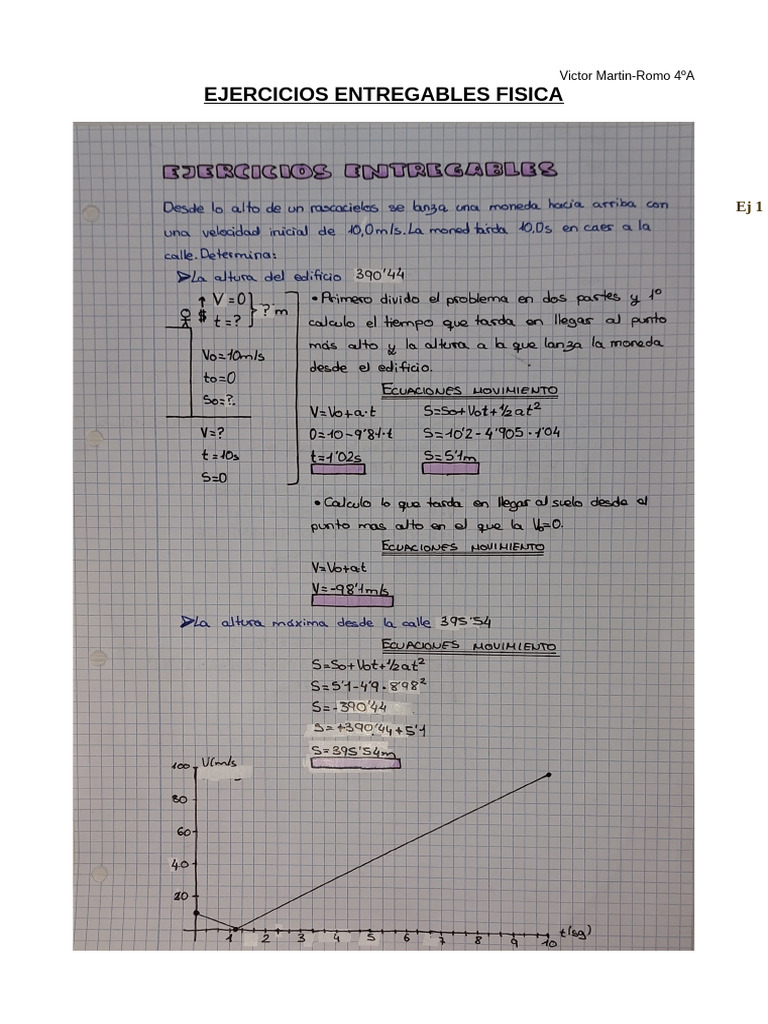 Victor Martin-Romo 4ºA
EJERCICIOS ENTREGABLES FISICA
EJERCICIOS ENTREGABLES
Ej 1
Desde lo alto de un rascacielos se lanza una moneda hacia arriba con
una velocidad inicial de 10,0m/s. La moned tarda 10,0s en caer a la
calle. Determina:
➤La altura del edificio 390'44
V=0
t=?
?m
$
Vo=10m/s
to=0
So=?
V=?
t=10s
S=0
• Primero divido el problema en dos partes y 1º
calculo el tiempo que tarda en llegar al punto
más alto y la altura a la que lanza la moneda
desde el edificio.
ECUACIONES MOVIMIENTO
V=Vo+a·t S=So+Vot+½at²
0=10-9'81·t S=10'2-4'905·1'04
t=1'02s S=5'1m
• Calculo lo que tarda en llegar al suelo desde el
punto mas alto en el que la Vo=0.
ECUACIONES MOVIMIENTO
V=Vo+at
V=-98'1m/s
➤La altura máxima desde la calle 395'54
ECUACIONES MOVIMIENTO
S=So+Vot+½at²
S=5'1-4'9·8'98²
S=-390'44
S=+390'44+5'1
S=395'54m
V(m/s
100
80
60
40
20
1 2 3 4 5 6 7 8 9 10
t(sg)